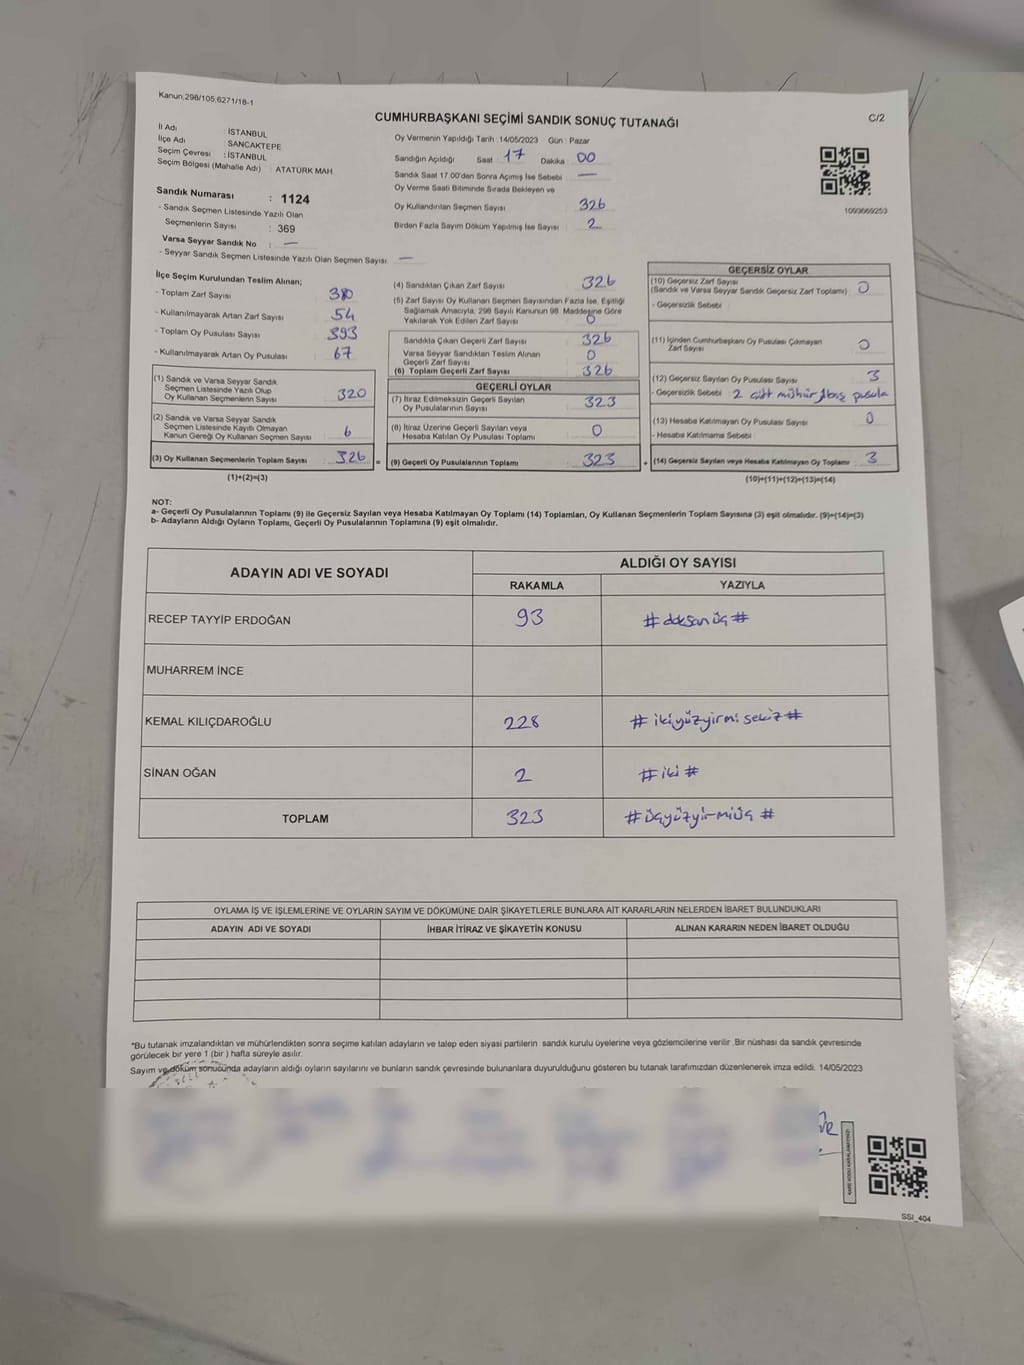 Kanun;298/105,6271/18-1
CUMHURBAŞKANI SEÇİMİ SANDIK SONUÇ TUTANAĞI
C/2
İl Adı : İSTANBUL
İlçe Adı : SANCAKTEPE
Seçim Çevresi : İSTANBUL
Seçim Bölgesi (Mahalle Adı) : ATATÜRK MAH.
Sandık Numarası : 1124
- Sandık Seçmen Listesinde Yazılı Olan
Seçmenlerin Sayısı : 369
Varsa Seyyar Sandık No : —
- Seyyar Sandık Seçmen Listesinde Yazılı Olan Seçmen Sayısı: —
Oy Vermenin Yapıldığı Tarih :14/05/2023 Gün : Pazar
Sandığın Açıldığı Saat : 17 Dakika : 00
Sandık Saat 17.00'den Sonra Açımış İse Sebebi : —
Oy Verme Saati Bitiminde Sırada Bekleyen ve
Oy Kullandırılan Seçmen Sayısı : 326
Birden Fazla Sayım Döküm Yapılmış İse Sayısı : 2
1093669253
İlçe Seçim Kurulundan Teslim Alınan;
- Toplam Zarf Sayısı : 380
- Kullanılmayarak Artan Zarf Sayısı : 54
- Toplam Oy Pusulası Sayısı : 393
- Kullanılmayarak Artan Oy Pusulası : 67
(1) Sandık ve Varsa Seyyar Sandık
Seçmen Listesinde Yazılı Olup
Oy Kullanan Seçmenlerin Sayısı : 320
(2) Sandık ve Varsa Seyyar Sandık
Seçmen Listesinde Kayıtlı Olmayan
Kanun Gereği Oy Kullanan Seçmen Sayısı : 6
(3) Oy Kullanan Seçmenlerin Toplam Sayısı : 326 =
(1)+(2)=(3)
(4) Sandıktan Çıkan Zarf Sayısı : 326
(5) Zarf Sayısı Oy Kullanan Seçmen Sayısından Fazla İse, Eşitliği
Sağlamak Amacıyla, 298 Sayılı Kanunun 98. Maddesine Göre
Yakılarak Yok Edilen Zarf Sayısı : 0
Sandıkta Çıkan Geçerli Zarf Sayısı : 326
Varsa Seyyar Sandıktan Teslim Alınan
Geçerli Zarf Sayısı : 0
(6) Toplam Geçerli Zarf Sayısı : 326
GEÇERLİ OYLAR
(7) İtiraz Edilmeksizin Geçerli Sayılan
Oy Pusulalarının Sayısı : 323
(8) İtiraz Üzerine Geçerli Sayılan veya
Hesaba Katılan Oy Pusulası Toplamı : 0
(9) Geçerli Oy Pusulalarının Toplamı : 323 +
GEÇERSİZ OYLAR
(10) Geçersiz Zarf Sayısı
(Sandık ve Varsa Seyyar Sandık Geçersiz Zarf Toplamı) : 0
- Geçersizlik Sebebi :
(11) İçinden Cumhurbaşkanı Oy Pusulası Çıkmayan
Zarf Sayısı : 0
(12) Geçersiz Sayılan Oy Pusulası Sayısı : 3
- Geçersizlik Sebebi : 2 çift mühür, 1 boş pusula
(13) Hesaba Katılmayan Oy Pusulası Sayısı : 0
- Hesaba Katılmama Sebebi :
(14) Geçersiz Sayılan veya Hesaba Katılmayan Oy Toplamı : 3
(10)+(11)+(12)+(13)=(14)
NOT:
a- Geçerli Oy Pusulalarının Toplamı (9) ile Geçersiz Sayılan veya Hesaba Katılmayan Oy Toplamı (14) Toplamları, Oy Kullanan Seçmenlerin Toplam Sayısına (3) eşit olmalıdır. (9)+(14)=(3)
b- Adayların Aldığı Oyların Toplamı, Geçerli Oy Pusulalarının Toplamına (9) eşit olmalıdır.
ADAYIN ADI VE SOYADI
ALDIĞI OY SAYISI
RAKAMLA YAZIYLA
RECEP TAYYİP ERDOĞAN 93 # doksan üç #
MUHARREM İNCE
KEMAL KILIÇDAROĞLU 228 # ikiyüzyirmi sekiz #
SİNAN OĞAN 2 # iki #
TOPLAM 323 # üçyüzyirmiüç #
OYLAMA İŞ VE İŞLEMLERİNE VE OYLARIN SAYIM VE DÖKÜMÜNE DAİR ŞİKAYETLERLE BUNLARA AİT KARARLARIN NELERDEN İBARET BULUNDUKLARI
ADAYIN ADI VE SOYADI İHBAR İTİRAZ VE ŞİKAYETİN KONUSU ALINAN KARARIN NEDEN İBARET OLDUĞU
*Bu tutanak imzalandıktan ve mühürlendikten sonra seçime katılan adayların ve talep eden siyasi partilerin sandık kurulu üyelerine veya gözlemcilerine verilir .Bir nüshası da sandık çevresinde
görülecek bir yere 1 (bir ) hafta süreyle asılır.
Sayım ve döküm sonucunda adayların aldığı oyların sayılarını ve bunların sandık çevresinde bulunanlara duyurulduğunu gösteren bu tutanak tarafımızdan düzenlenerek imza edildi. 14/05/2023
KARE KODU KARALAMAYINIZ!
SSI_404